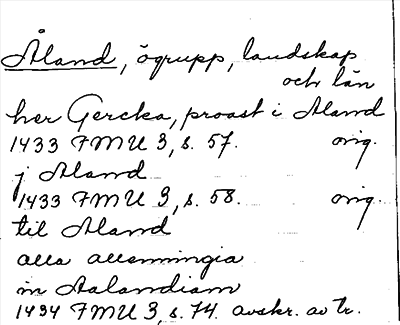 Åland, ögrupp, landskap
och län
her Gercka, proast i Aland
1433 FMU 3, s. 57. orig.
j Aland
1433 FMU 3, s. 58. orig.
til Aland
alla allmningia
in Aalandiam
1434 FMU 3, s. 74. avskr. av tr.